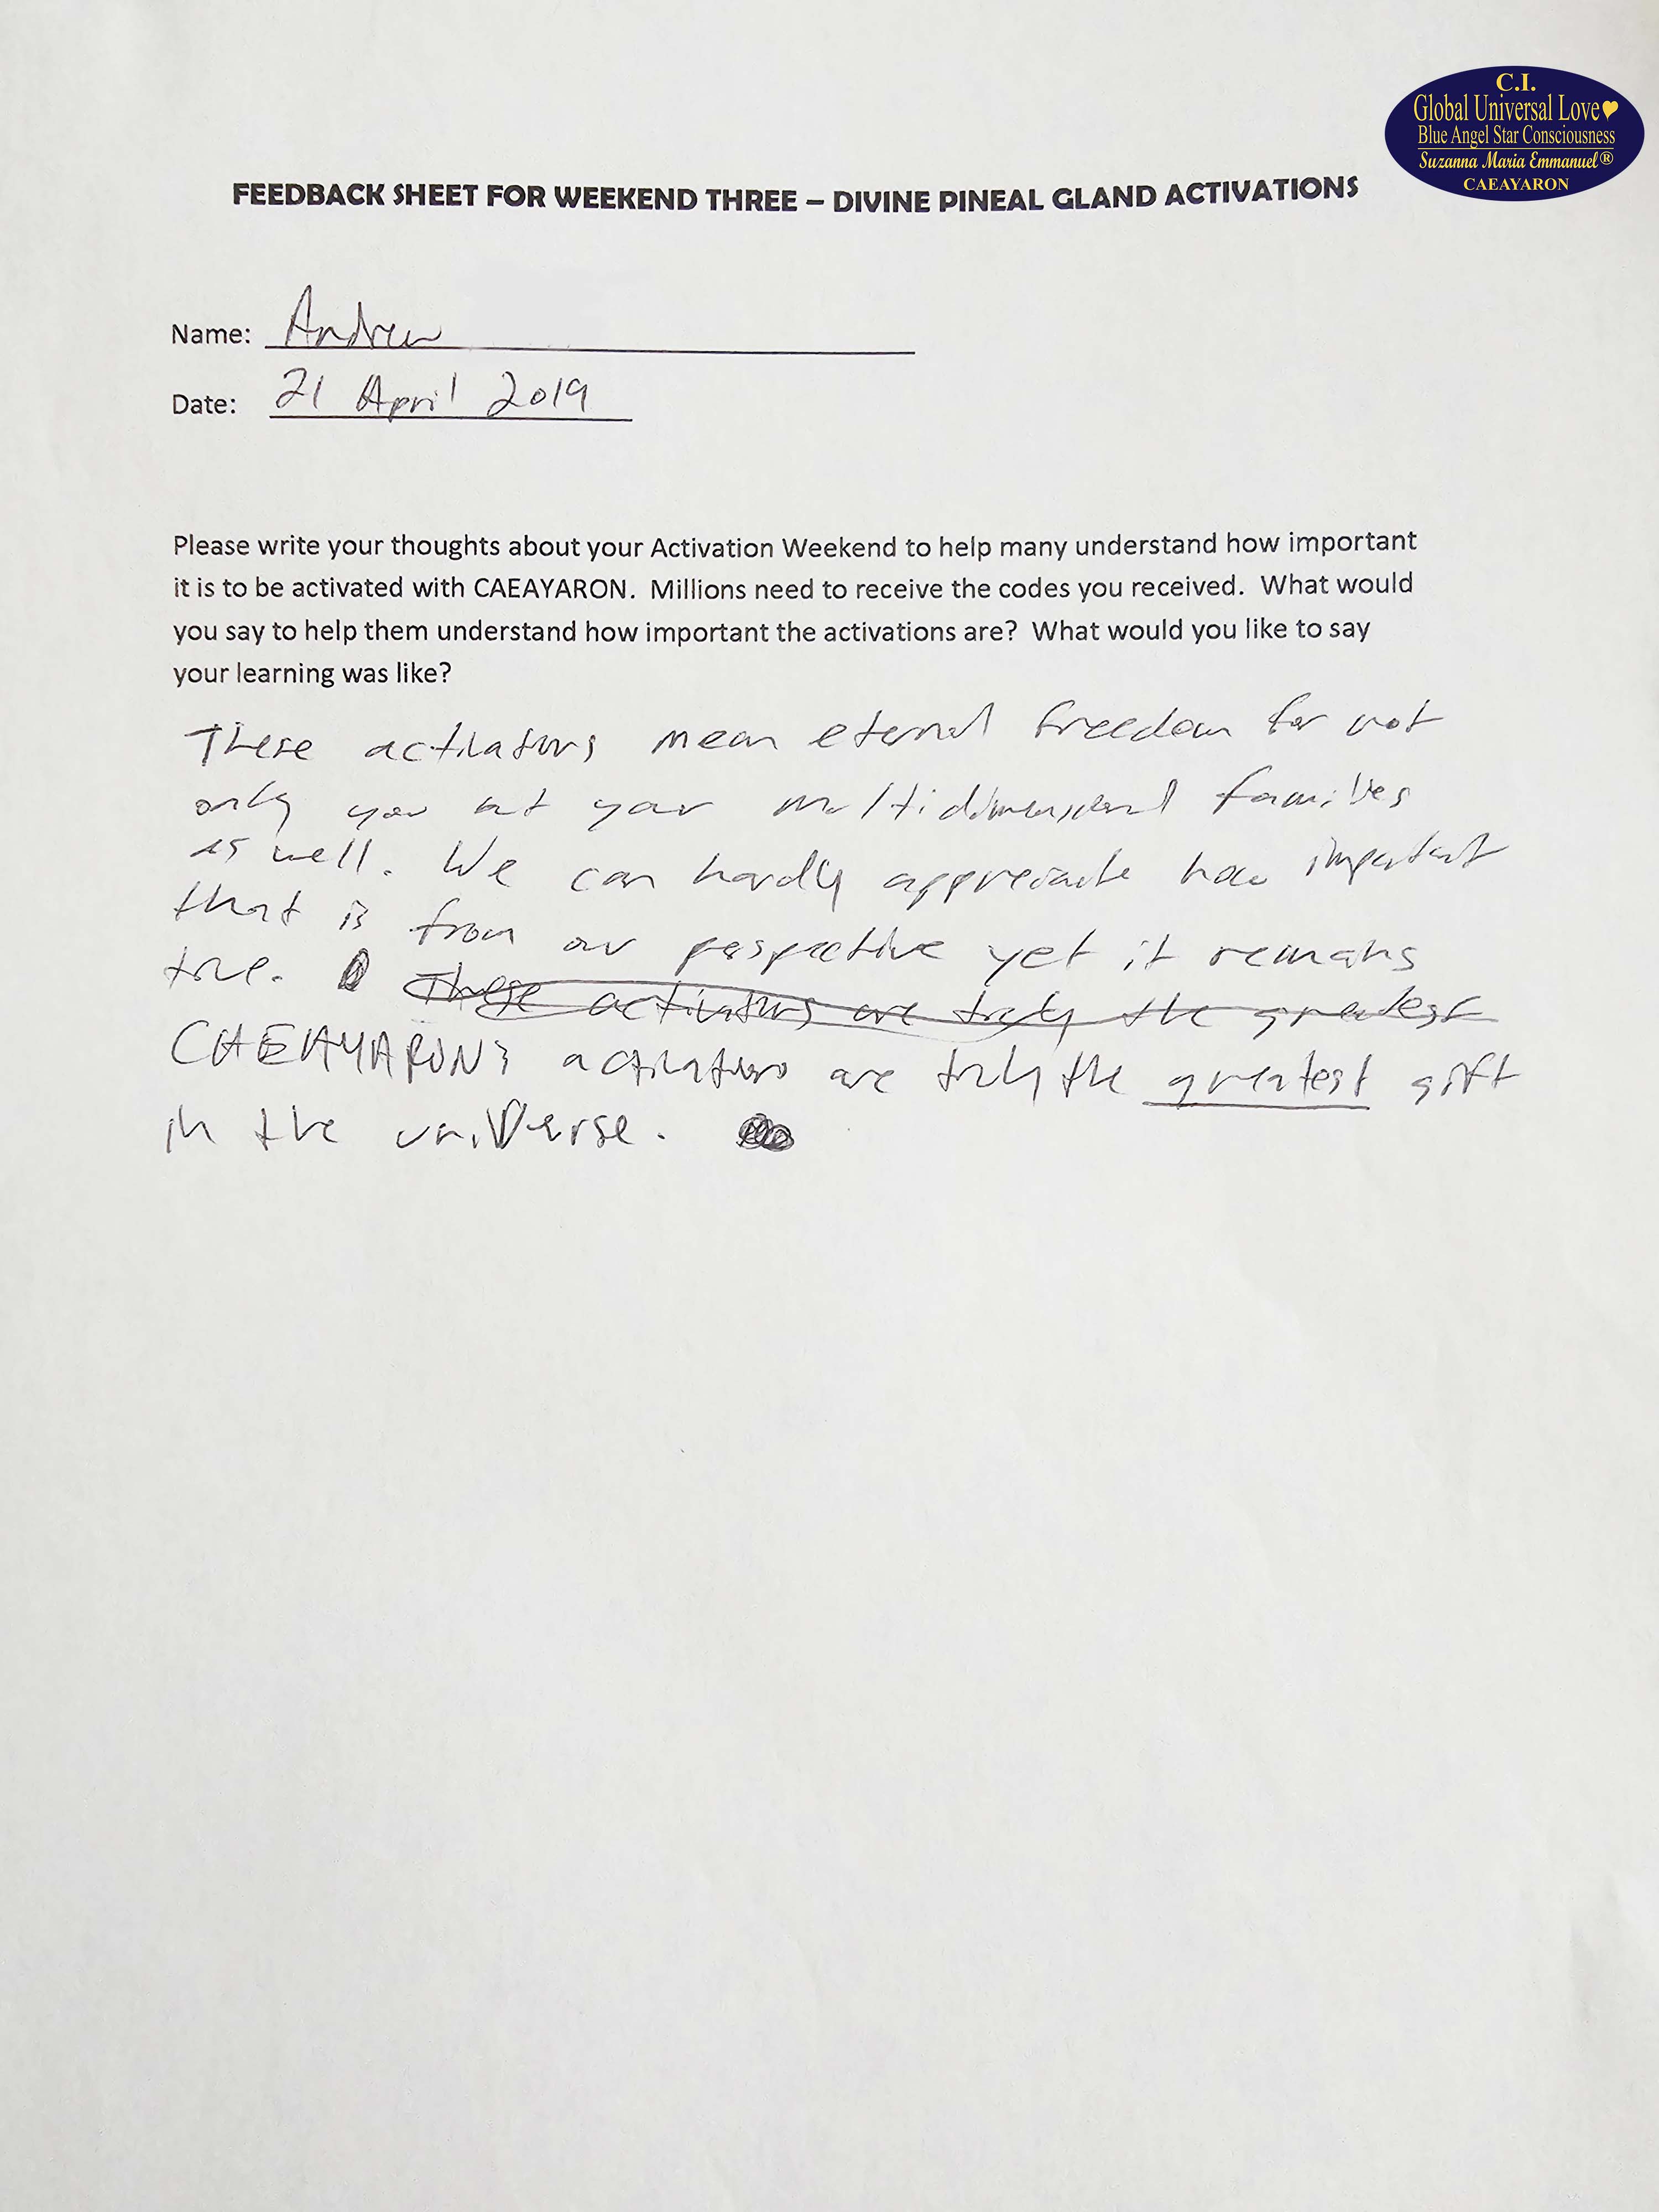 C.I.
Global Universal Love
Blue Angel Star Consciousness
Suzanna Maria Emmanuel®
CAEAYARON
FEEDBACK SHEET FOR WEEKEND THREE – DIVINE PINEAL GLAND ACTIVATIONS
Name: Andrew
Date: 21 April 2019
Please write your thoughts about your Activation Weekend to help many understand how important
it is to be activated with CAEAYARON. Millions need to receive the codes you received. What would
you say to help them understand how important the activations are? What would you like to say
your learning was like?
These activations mean eternal freedom for not
only you but your multidimensional families
as well. We can hardly appreciate how important
that is from our perspective yet it remains
true. These activations are truly the greatest
CAEAYARON's activations are truly the greatest gift
in the universe.